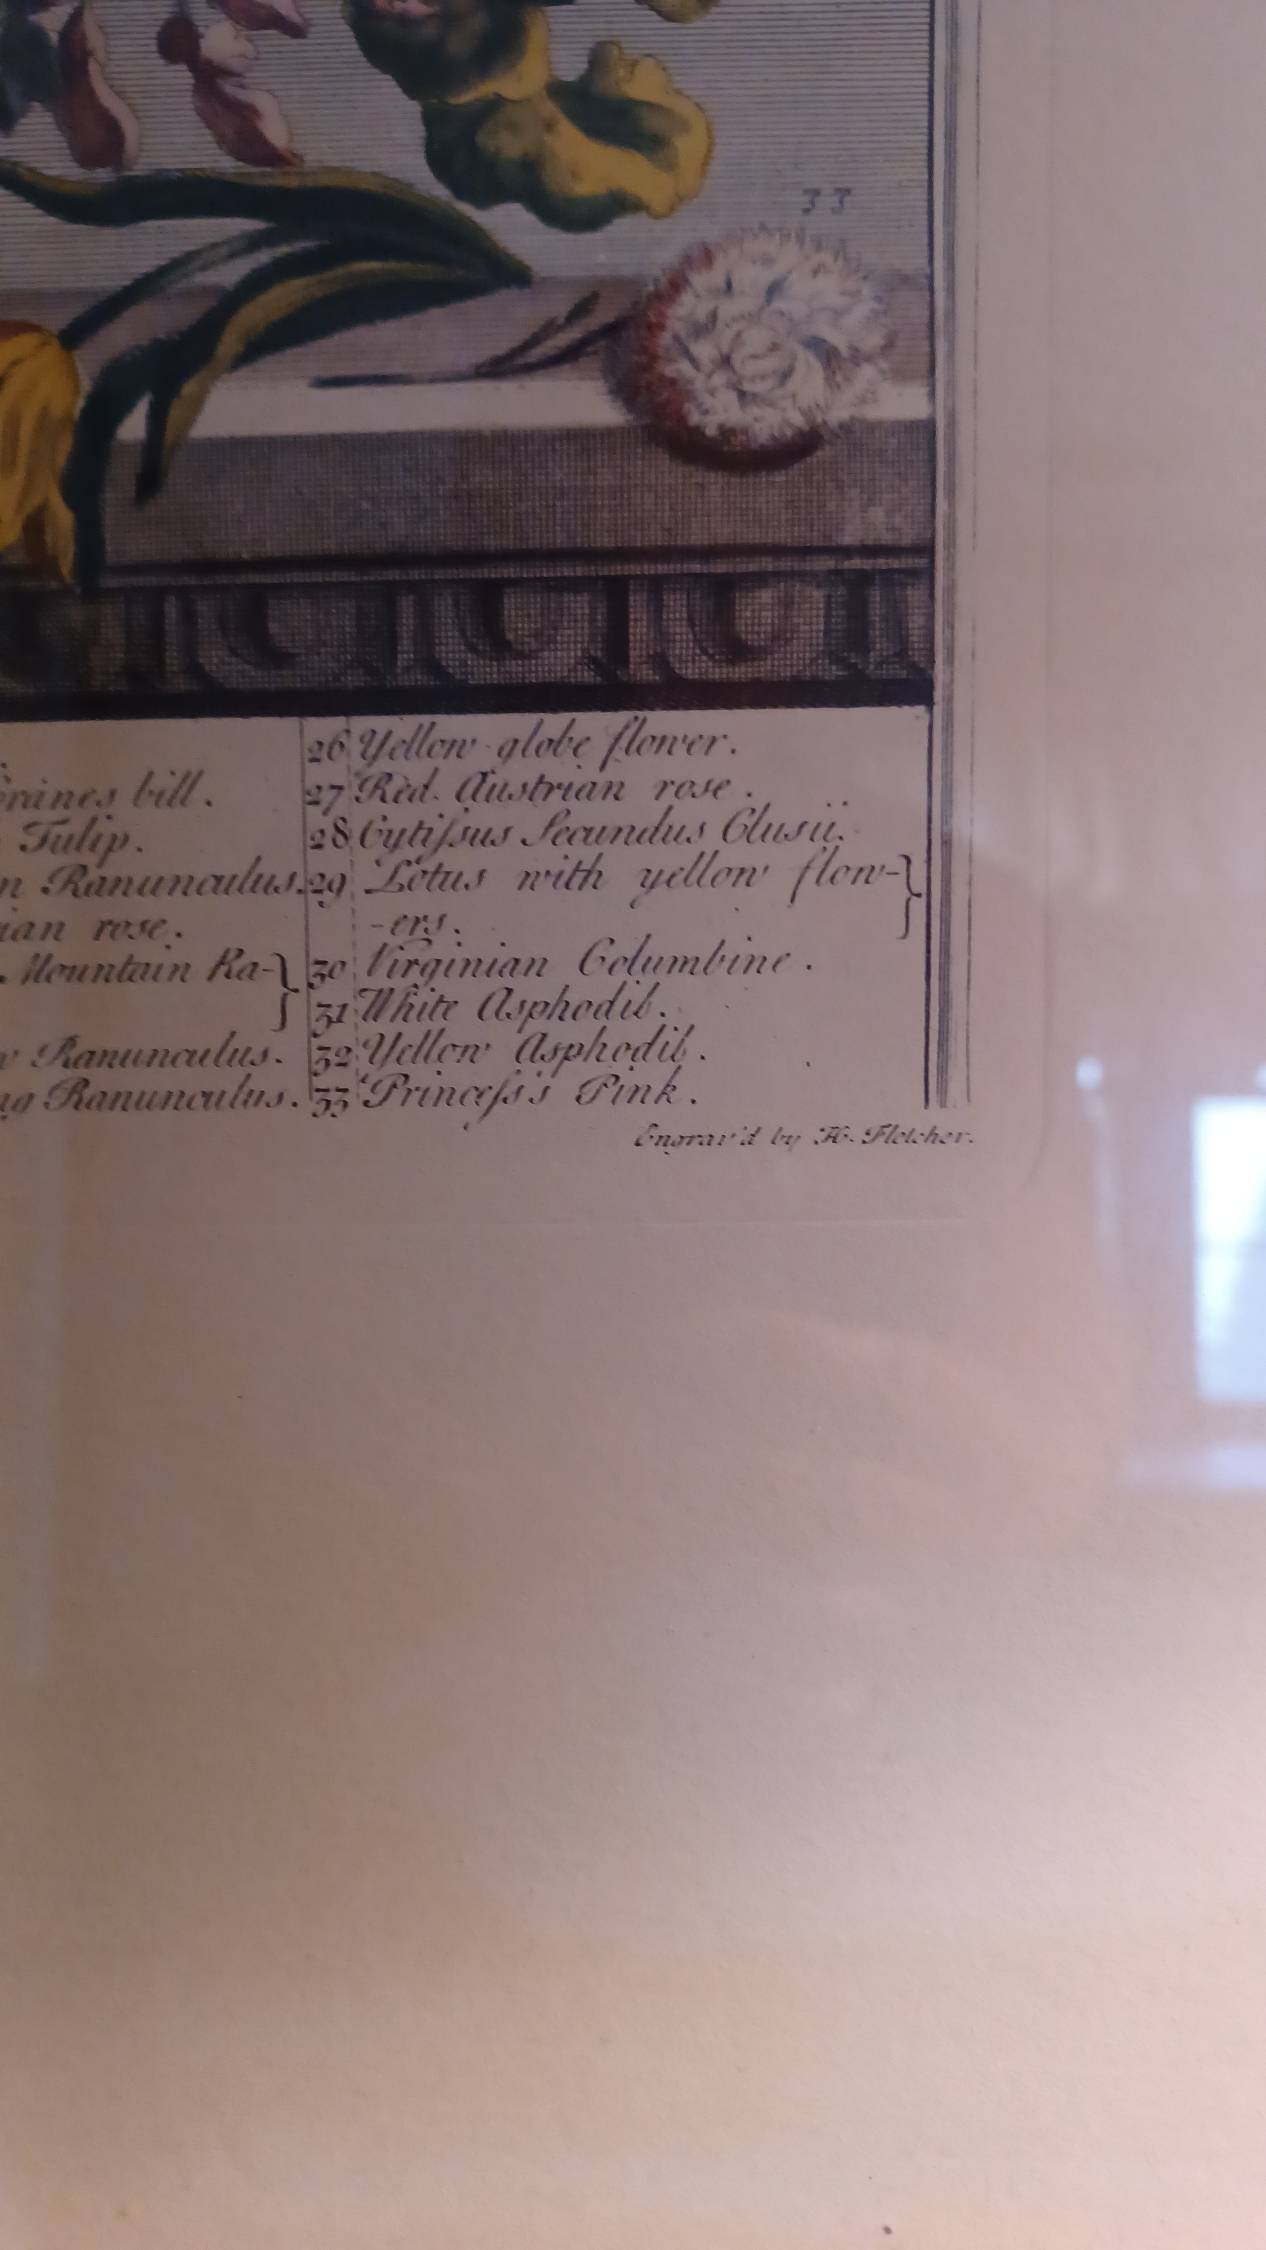 33
Cranes bill.
Tulip.
Ranunculus.
rose.
Mountain Ra-
Ranunculus.
Ranunculus.
26 Yellow globe flower.
27 Red Austrian rose.
28 Cytiſsus Secundus Clusii.
29 Lotus with yellow flow-
-ers.
30 Virginian Columbine.
31 White Asphodil.
32 Yellow Asphodil.
33 Princeſs's Pink.
Engrav'd by H. Fletcher.